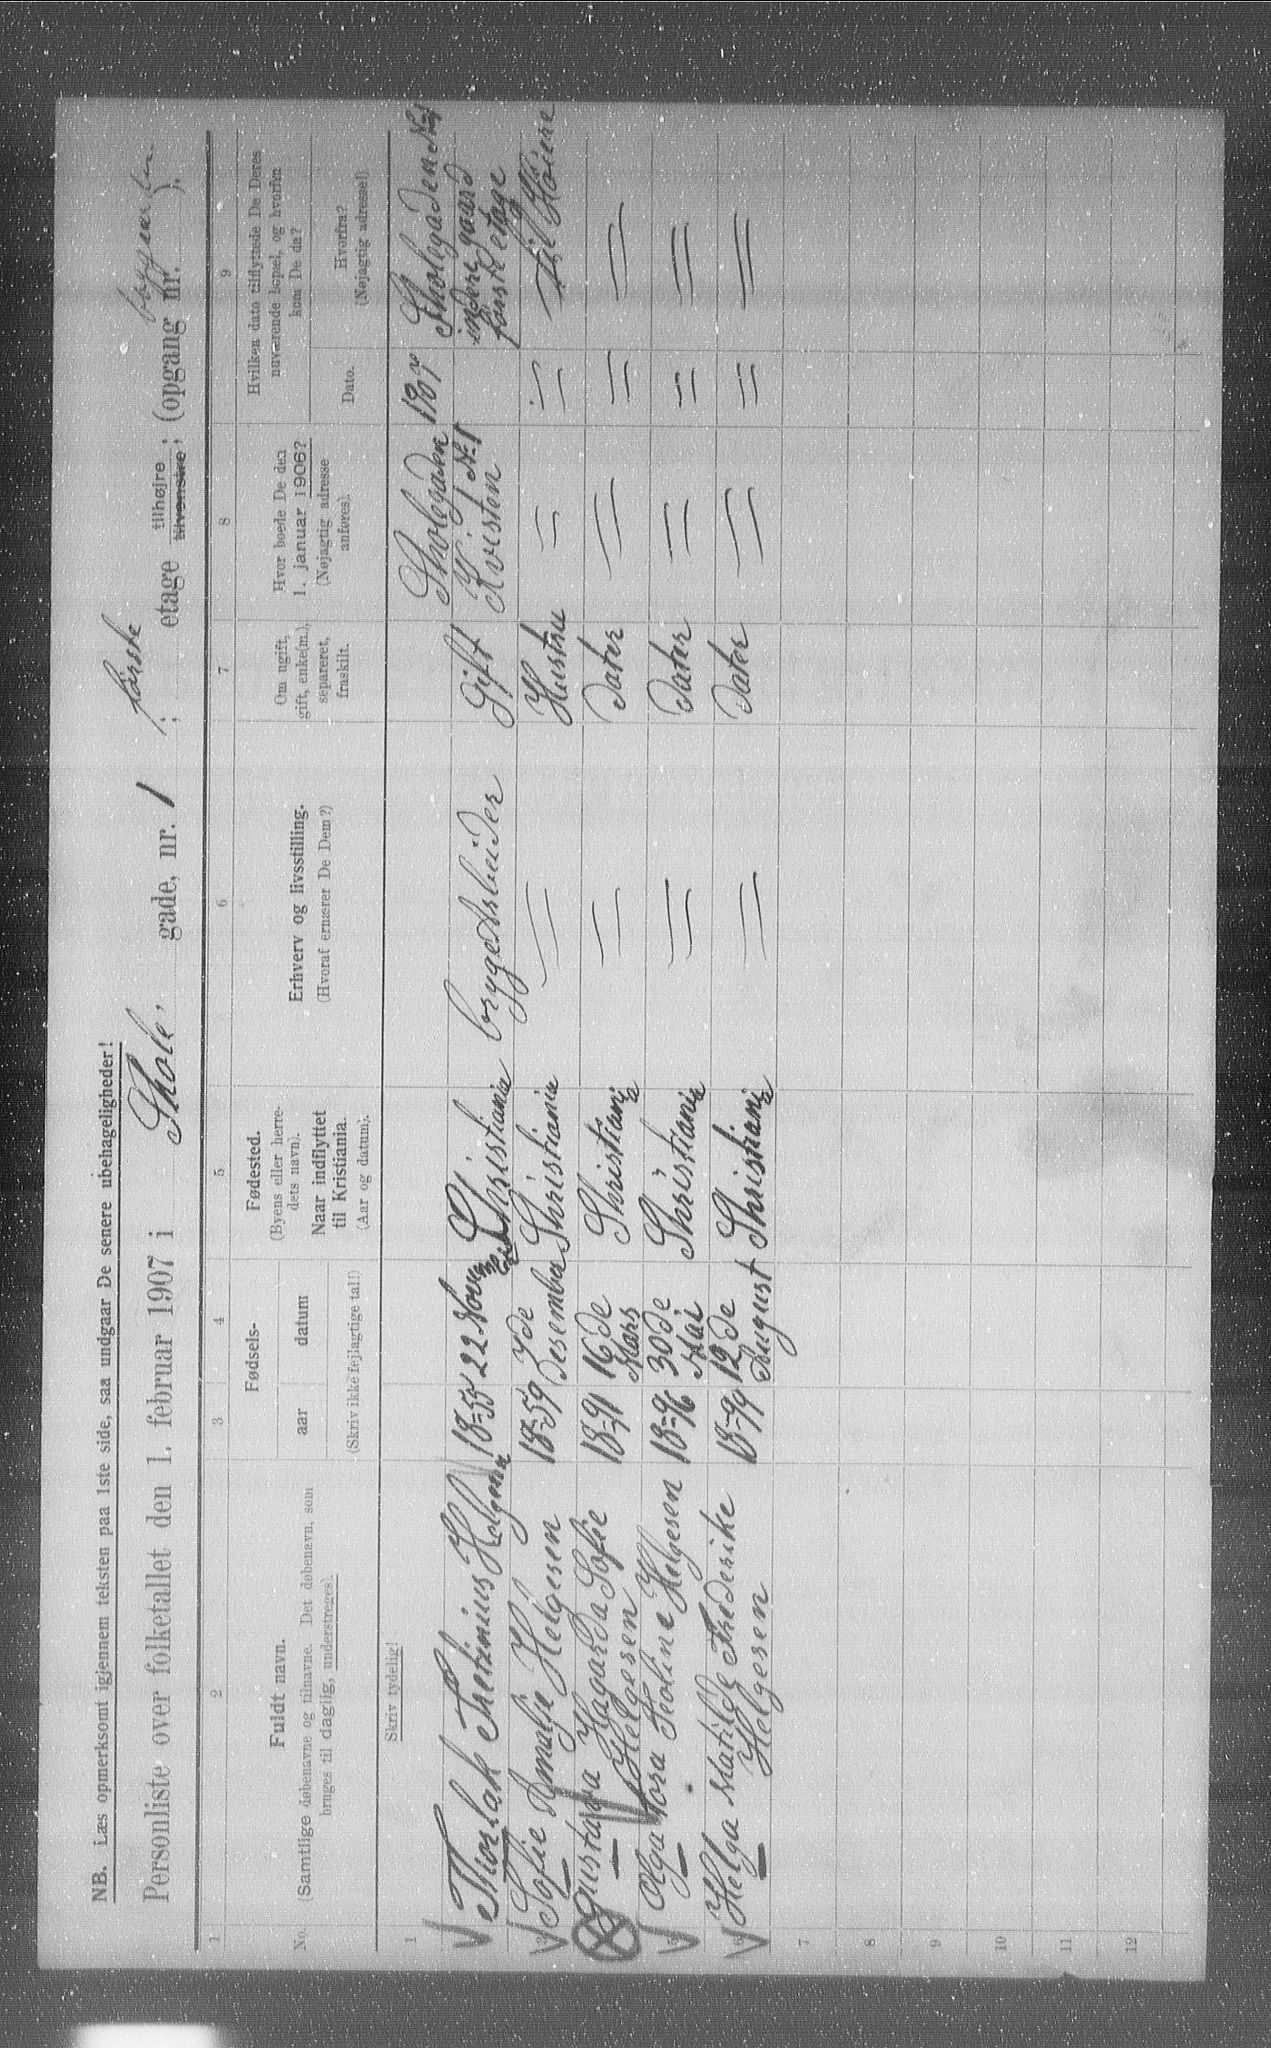 NB. Læs opmerksomt igjennem teksten paa 1ste side, saa undgaar De senere ubehageligheder!
Personliste over folketallet den 1. februar 1907 i Skole, gade, nr. 1 ; første etage tilhøjre tilvenstre ; (opgang nr. ).
1 2 3 4 5 6 7 8 9
No.
Fuldt navn.
(Samtlige døbenavne og tilnavne. Det døbenavn, som
bruges til daglig, understreges).
Skriv tydelig!
Fødsels-
aar datum
(Skriv ikke fejlagtige tal!)
Fødested.
(Byens eller herre-
dets navn).
Naar indflyttet
til Kristiania.
(Aar og datum).
Erhverv og livsstilling.
(Hvoraf ernærer De Dem?)
Om ugift,
gift, enke(m.),
separeret,
fraskilt.
Hvor boede De den
1. januar 1906?
(Nøjagtig adresse
anføres).
Hvilken dato tilflyttede De Deres
nuværende bopæl, og hvorfra
kom De da?
Dato.
Hvorfra?
(Nøjagtig adresse!)
1
Thorlak Helgesen 18=55 22 Christiania bryggeArbeider Gift Skolegaden No 1 Kvisten 1907 Skolegaden No 1
indre gaard
første etage
til Høire
3 Sofie Amalie Helgesen 18=59 7de Desember Christiania = Hustru = = =
Gustava Hagarda Sofie
Helgesen 18=91 16de Mars Christiania = Dater = = =
5 Olga Tora Teoline Helgesen 18=96 30de Mai Christiania = Dater = = =
6 Helga Matilde Frederike
Helgesen 18=99 12de August Christiania = Dater = = =
7
8
9
10
11
12